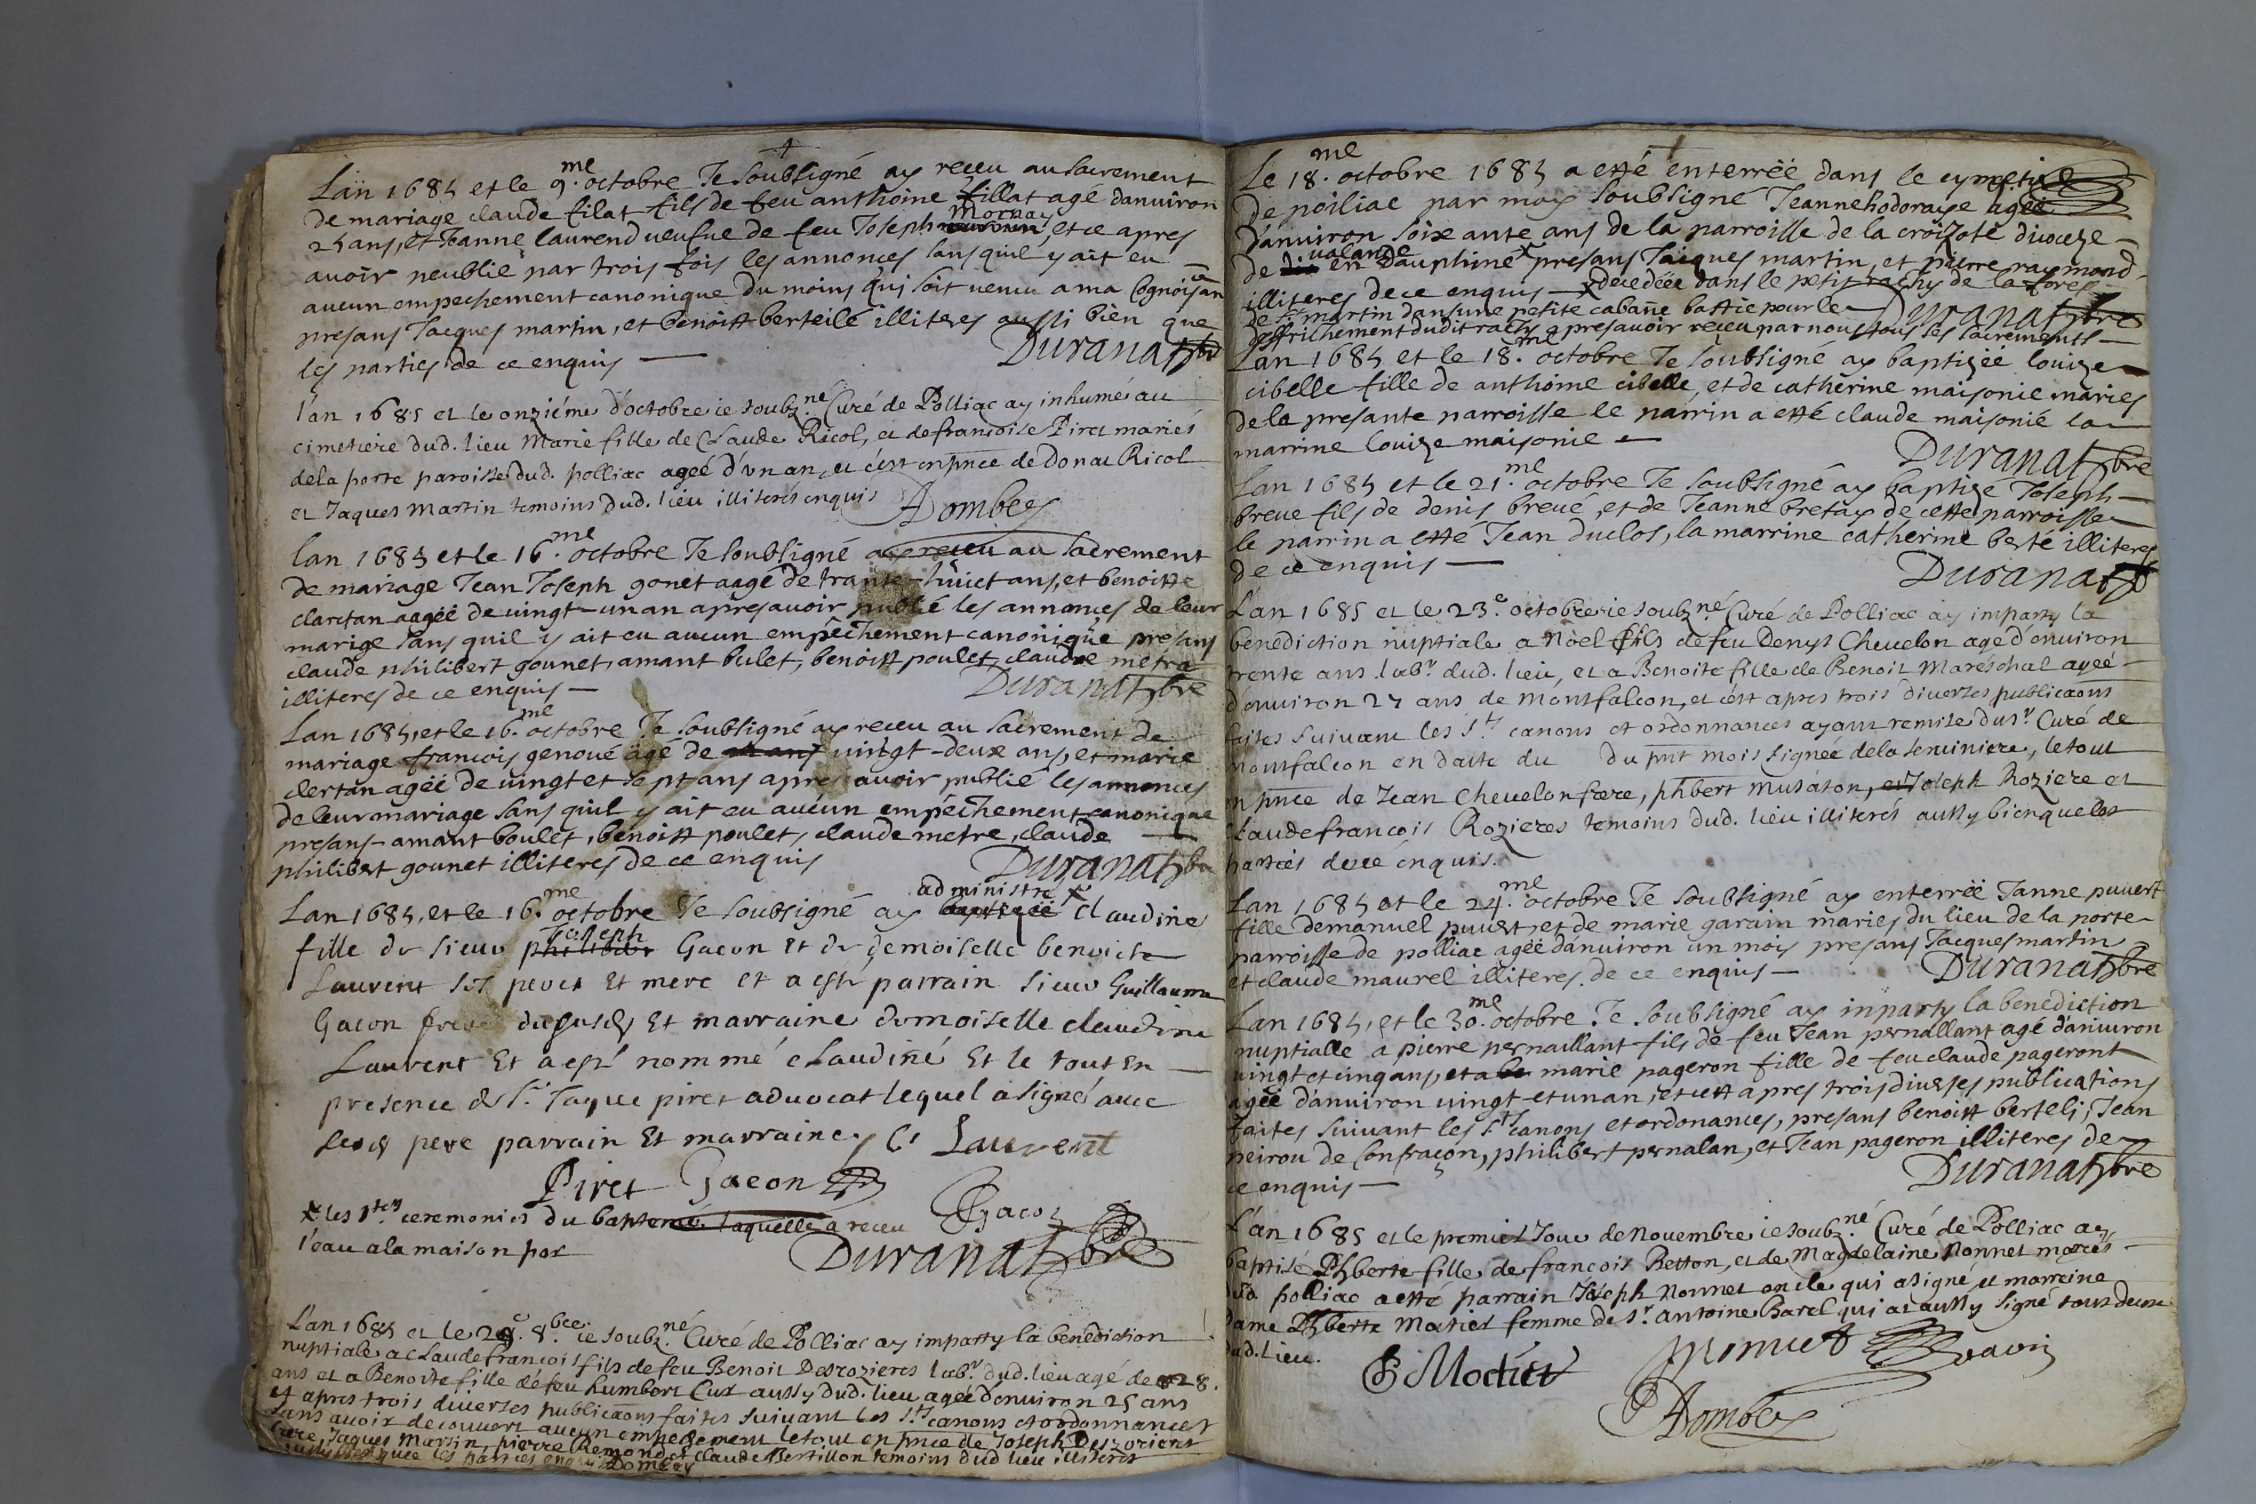 Lan 1685 et le 9.me octobre Je soubsigné ay receu au sacrement
de mariage claude filat fils de feu anthoine fillat agé danuiron
25 ans, et Jeanne laurend ueufue de feu Joseph mornay, et ce apres
auoir peublié par trois fois les annonces sans quil y ait eu
aucun empechement canonique du moins qui soit uenu a ma cognoisance
presans Jacques martin, et benoist berteilé illiteres aussi bien que
les parties de ce enquis
Duranat pbre
l'an 1685 et le onziéme d'octobre ie soubz.né Curé de Polliac ay inhumé au
cimetiere dud. lieu Marie fille de Claude Ricol, et de francoise Piret mariés
de la porte paroisse dud. polliac ageé d'vn an, et c'est en pnce de Donat Ricol
et Jaques Martin temoins dud. lieu illiterés enquis
Dombey
lan 1685 et le 16.me octobre Je soubsigné ay receu au sacrement
de mariage Jean Joseph gonet aagé de trante-huict ans, et benoiste
claretan aagéé de uingt-un an apres auoir publié les annonces de leur
marige sans quil y ait eu aucun empêchement canonique presans
claude philibert gounet, amant bulet, benoist poulet, claude metra
illiteres de ce enquis
Duranat pbre
Lan 1685, et le 16.me octobre Je soubsigné ay receu au sacrement de
mariage francois genoué agé de uingt-deux ans, et marie
clertan agéé de uingt et sept ans apres auoir publié les annonces
de leur mariage sans quil y ait eu aucun empêchement canonique
presans amant boulet, benoist poulet, claude metre, claude
philibert gounet illiteres de ce enquis
Duranat pbre
Lan 1685, et le 16.me octobre Je soubsigné ay administré x claudine
fille de sieur Joseph Gacon et de demoiselle benoiste
Laurent ses peres et mere et a esté parrain sieur Guillaume
Gacon frere du susd et marraine demoiselle claudine
Laurent Et a esté nommé claudine Et le tout En
presence de Sr Jaque piret advocat lequel a signé auec
lesd pere parrain Et marraine. Cl Laurent
Piret Gacon
Gacon
x les stes ceremonies du bapteme laquelle a receu
l'eau a la maison par
Duranat pbre
L'an 1685 et le 28.e 8.bre ie soubz.né Curé de Polliac ay imparty la benediction
nuptiale a Claude francois fils de feu Benoit Desrozieres lab.r dud. lieu agé de 28.
ans et a Benoite fille de feu humbert Cur aussy dud. lieu ageé d'enuiron 25 ans
et apres trois diuerses publicaons faites suiuant les s.ts canons et ordonnances
sans auoir decouuert aucun empechement le tout en pnce de Joseph Desrozieres
frere, Jaques Martin, pierre Remond et Claude Bertillon temoins dud lieu illiterés
aussy bien que les parties enquis Dombey
Le 18.me octobre 1685 a etté enterréé dans le cymetire
de poiliac par moy soubsigné Jeanne hodoraye agéé
danuiron soixante ans de la parroisse de la croizote dioceze
de ualance en Dauphiné x presans Jacques martin, et pierre raymond
illiteres de ce enquis x decedéée dans le petit rachy de la fores
de St. martin dans une petite cabane bastie pour le
deffrichement dudit rachy apres auoir receu par nous tous les sacrements
Duranat pbre
Lan 1685 et le 18.me octobre Je soubsigné ay baptizéé louize
cibelle fille de anthoine cibelle, et de catherine maisonie mariés
de la presante parroisse le parrin a etté claude maisonié la
marrine louize maisonie
Duranat pbre
Lan 1685 et le 21.me octobre Je soubsigné ay baptizé Joseph
breue fils de denis breué, et de Jeanne bretay de cette parroisse
le parrin a etté Jean duclos, la marrine catherine berté illiteres
de ce enquis
Duranat pb
L'an 1685 et le 23.e octobre ie soubz.né Curé de Polliac ay imparty la
benediction nuptiale a Nöel fils de feu Denys Cheuelon agé d'enuiron
trente ans lab.r dud. lieu, et a Benoite fille de Benoit Maréschal ageé
d'enuiron 27 ans de Montfalcon, et c'est apres trois diuerses publicaons
faites suiuant les s.ts canons et ordonnances ayant remise du s.r Curé de
Montfalcon en datte du du pnt mois signee de la Seruiniere, le tout
en pnce de Jean Cheuelon frere, phbert Musaton, et Joseph Roziere et
Claude francois Rozieres temoins dud. lieu illiterés aussy bien que les
parties de ce enquis.
Lan 1685 et le 24.me octobre Je soubsigné ay enterréé Janne puuert
fille demanuel puuert, et de marie garain mariés du lieu de la porte
parroisse de polliac agéé danuiron un mois presans Jacques martin
et claude maurel illiteres de ce enquis
Duranat pbre
Lan 1685, et le 30.me octobre Je soubsigné ay inparty la benediction
nuptialle à pierre pernaillant fils de feu Jean pernallant agé danuiron
uingt et cinq ans, et a marie pageron fille de feu claude pageront
agéé danuiron uingt et un an, et cest apres trois diuerses publications
faites suiuant les s.ts canons et ordonances, presans benoist berteli, Jean
peirou de confracon, philibert pernalan, et Jean pageron illiteres de
ce enquis
Duranat pbre
L'an 1685 et le premier Jour de Nouembre ie soubz.né Curé de Polliac ay
baptisé Phberte fille de francois Retton, et de Magdelaine Nonnet mariés
dud polliac a etté parrain Joseph Nonnet oncle qui a signé, et marreine
dame Phberte Motier femme de s.r Antoine Barel qui at aussy signé tous deux
dud. lieu.
P Motier
Dombey